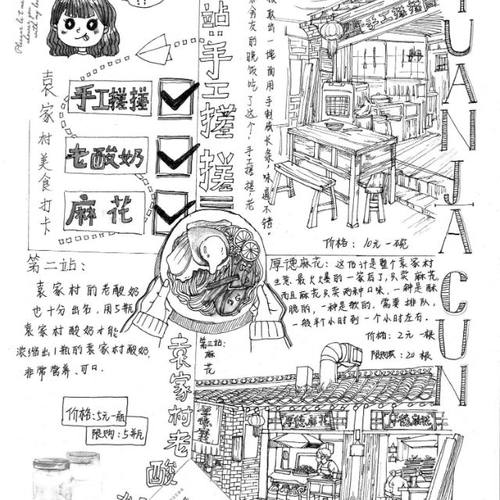 站:手工搓搓面
袁家村美食打卡
手工搓搓
老酸奶
麻花
YUANJIACUN
价格:10元一碗
第二站:
袁家村的老酸奶
也十分出名,用5瓶
袁家村酸奶才能
浓缩出1瓶的袁家村酸奶,
非常营养、可口.
价格:5元一瓶
限购:5瓶
袁家村老酸
第三站:
麻
花
厚德麻花:这估计是整个袁家村
生意最火爆的一家店了,只卖麻花
而且麻花只卖两种口味,一种是酥
脆的,一种是软的.需要排队,
一般半小时到一个小时左右.
价格:2元一根
限购:20根
厚德麻花